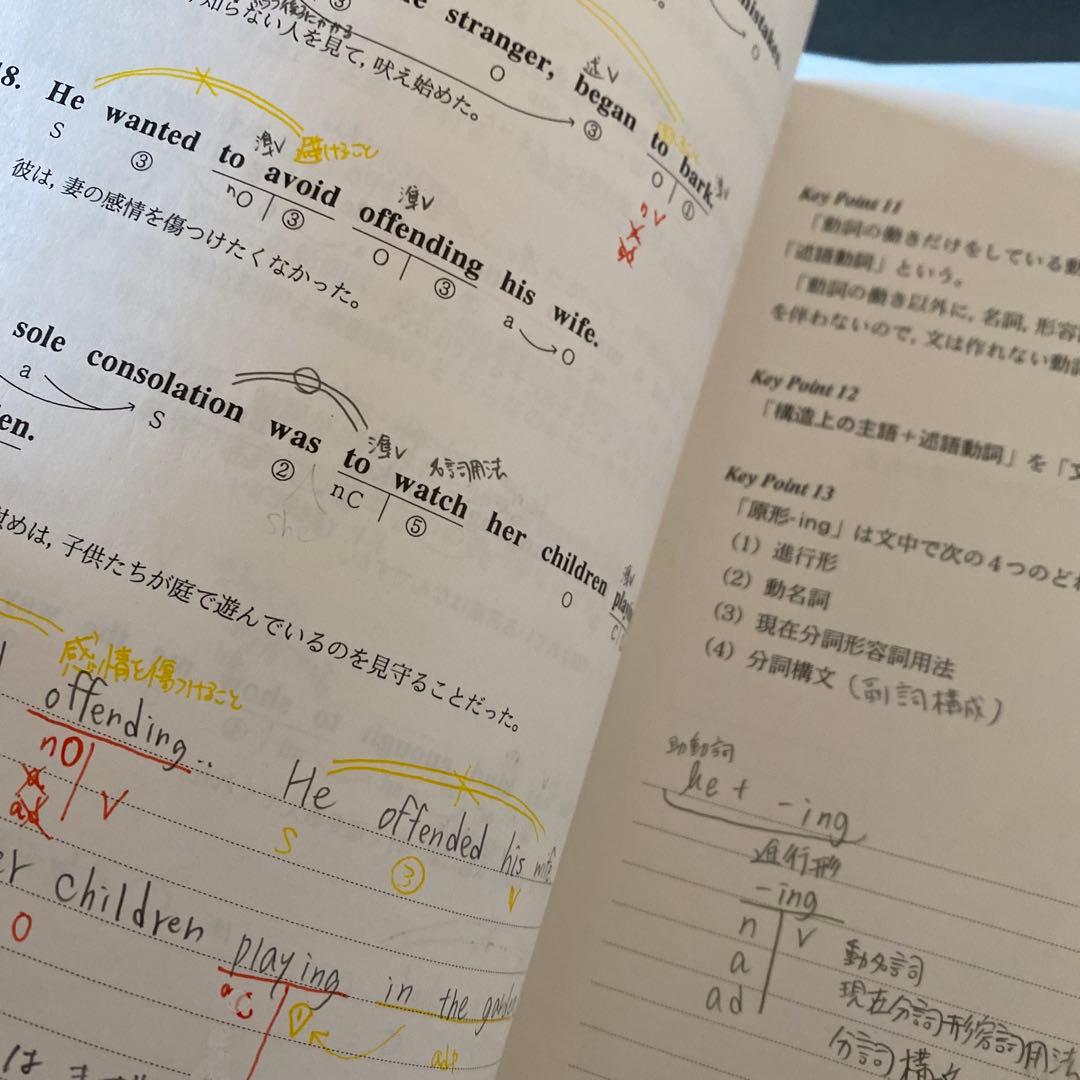 stranger, began to bark.
O ③ O ① 
知らない人を見て, 吠え始めた。
nV
18. He wanted to avoid offending his wife.
避けること
S ③ nO ③ O ③ a O
彼は, 妻の感情を傷つけたくなかった。
sole consolation was to watch her children
名詞用法
a S ② nC ⑤ O
en.
慰めは, 子供たちが庭で遊んでいるのを見守ることだった。
感情を傷つけること
offending..
nO V
a
ad
He offended his wife
S ③
children playing in the garden
O
Key Point 11
「動詞の働きだけをしている動
「述語動詞」という。
「動詞の働き以外に, 名詞, 形容
を伴わないので, 文は作れない動詞
Key Point 12
「構造上の主語+述語動詞」を「文
Key Point 13
「原形-ing」は文中で次の4つのどれ
(1) 進行形
(2) 動名詞
(3) 現在分詞形容詞用法
(4) 分詞構文 (副詞構成)
助動詞
be + -ing
進行形
-ing
n V 動名詞
a 現在分詞形容詞用法
ad 分詞構文